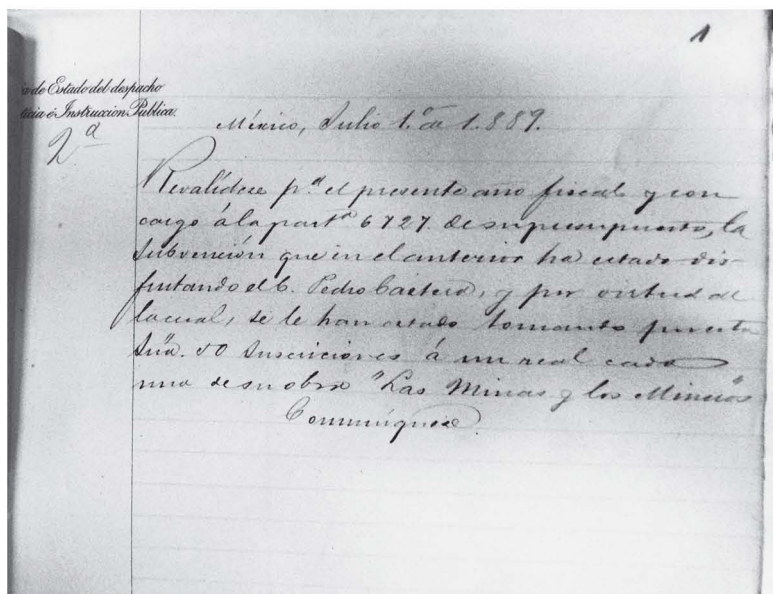 1
a de Estado del despacho
ticia é Instruccion Publica.
2ª
México, Julio 1.º de 1.889.
Revalídese p.ª el presente año fiscal y con
cargo á la part.ª 6727. de su presupuesto, la
subvención que en el anterior ha estado dis-
frutando el C. Pedro Castera, y por virtud de
la cual, se le han estado tomando por esta
Sría. 50 suscriciones á un real cada
una de su obra "Las Minas y los Mineros"
Comuníquese.